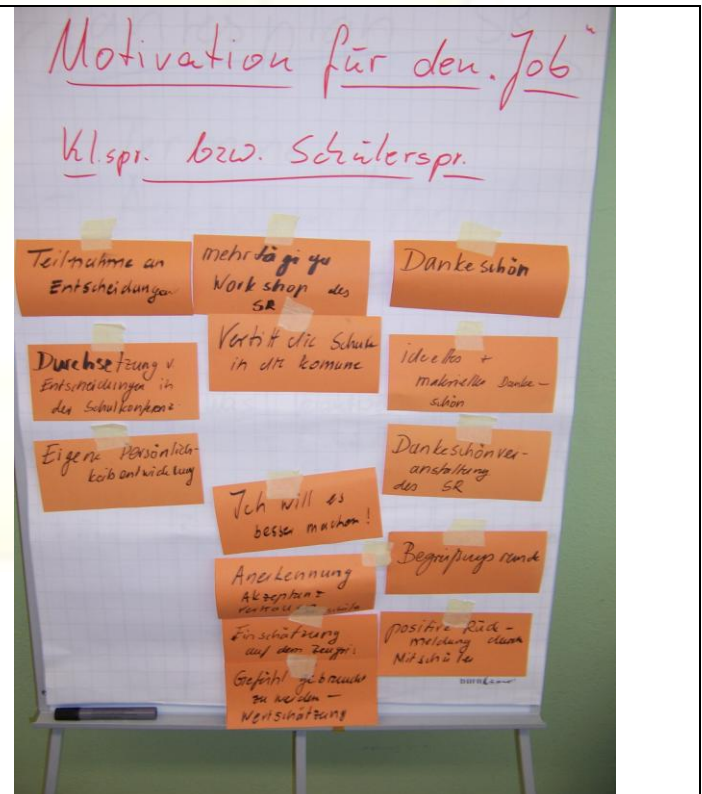 Motivation für den „Job“
Kl.spr. bzw. Schülerspr.
Teilnahme an
Entscheidungen
Durchsetzung v.
Entscheidungen in
der Schulkonferenz
Eigene Persönlich-
keitsentwicklung
mehrtägige
Workshop des
SR
Vertitt die Schule
in der komune
Ich will es
besser machen!
Anerkennung
Akzeptanz
Einschätzung
auf dem Zeugnis
Gefühl gebraucht
zu werden –
Wertschätzung
Dankeschön
ideelles +
materielles Danke-
schön
Dankeschönver-
anstaltung
des SR
Begrüßungsrunde
positive Rück-
meldung durch
Mitschüler